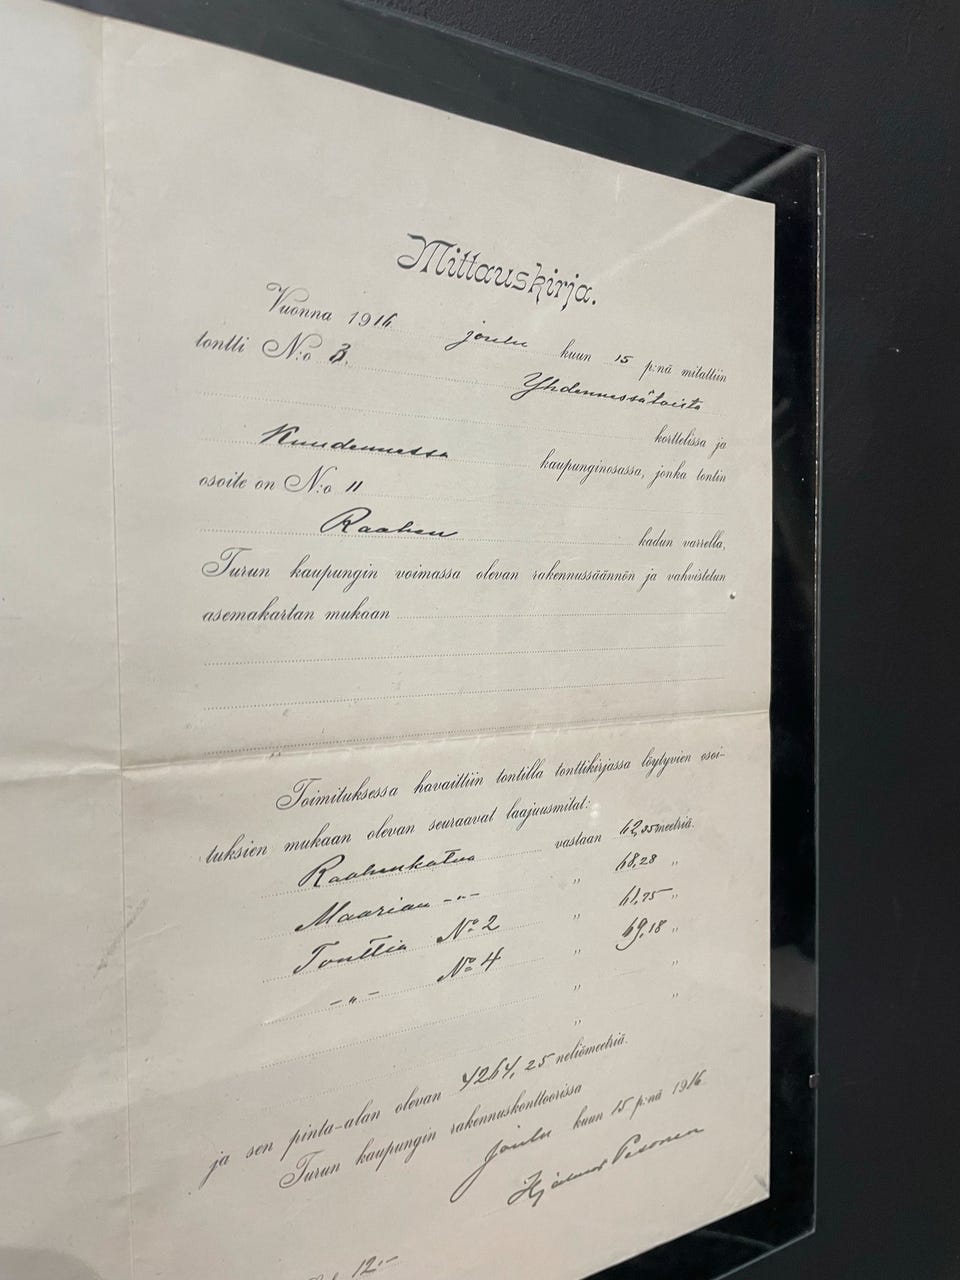 Mittauskirja.
Vuonna 1916 joulu kuun 15 p:nä mitattiin
tontti N:o 3. Yhdennessätoista
korttelissa ja
Kuudennessa kaupunginosassa, jonka tontin
osoite on N:o 11
Raahen kadun varrella,
Turun kaupungin voimassa olevan rakennussäännön ja vahvistetun
asemakartan mukaan
Toimituksessa havaittiin tontilla tonttikirjassa löytyvien osoi-
tuksien mukaan olevan seuraavat laajuusmitat:
Raahenkatua vastaan 62,35 meetriä.
Maarian -"- " 68,28 "
Tonttia No 2 " 61,75 "
-"- No 4 " 69,18 "
" "
" "
ja sen pinta-alan olevan 4264,25 neliömeetriä.
Turun kaupungin rakennuskonttoorissa
joulu kuun 15 p:nä 1916
Hjalmar Pesonen
12:-